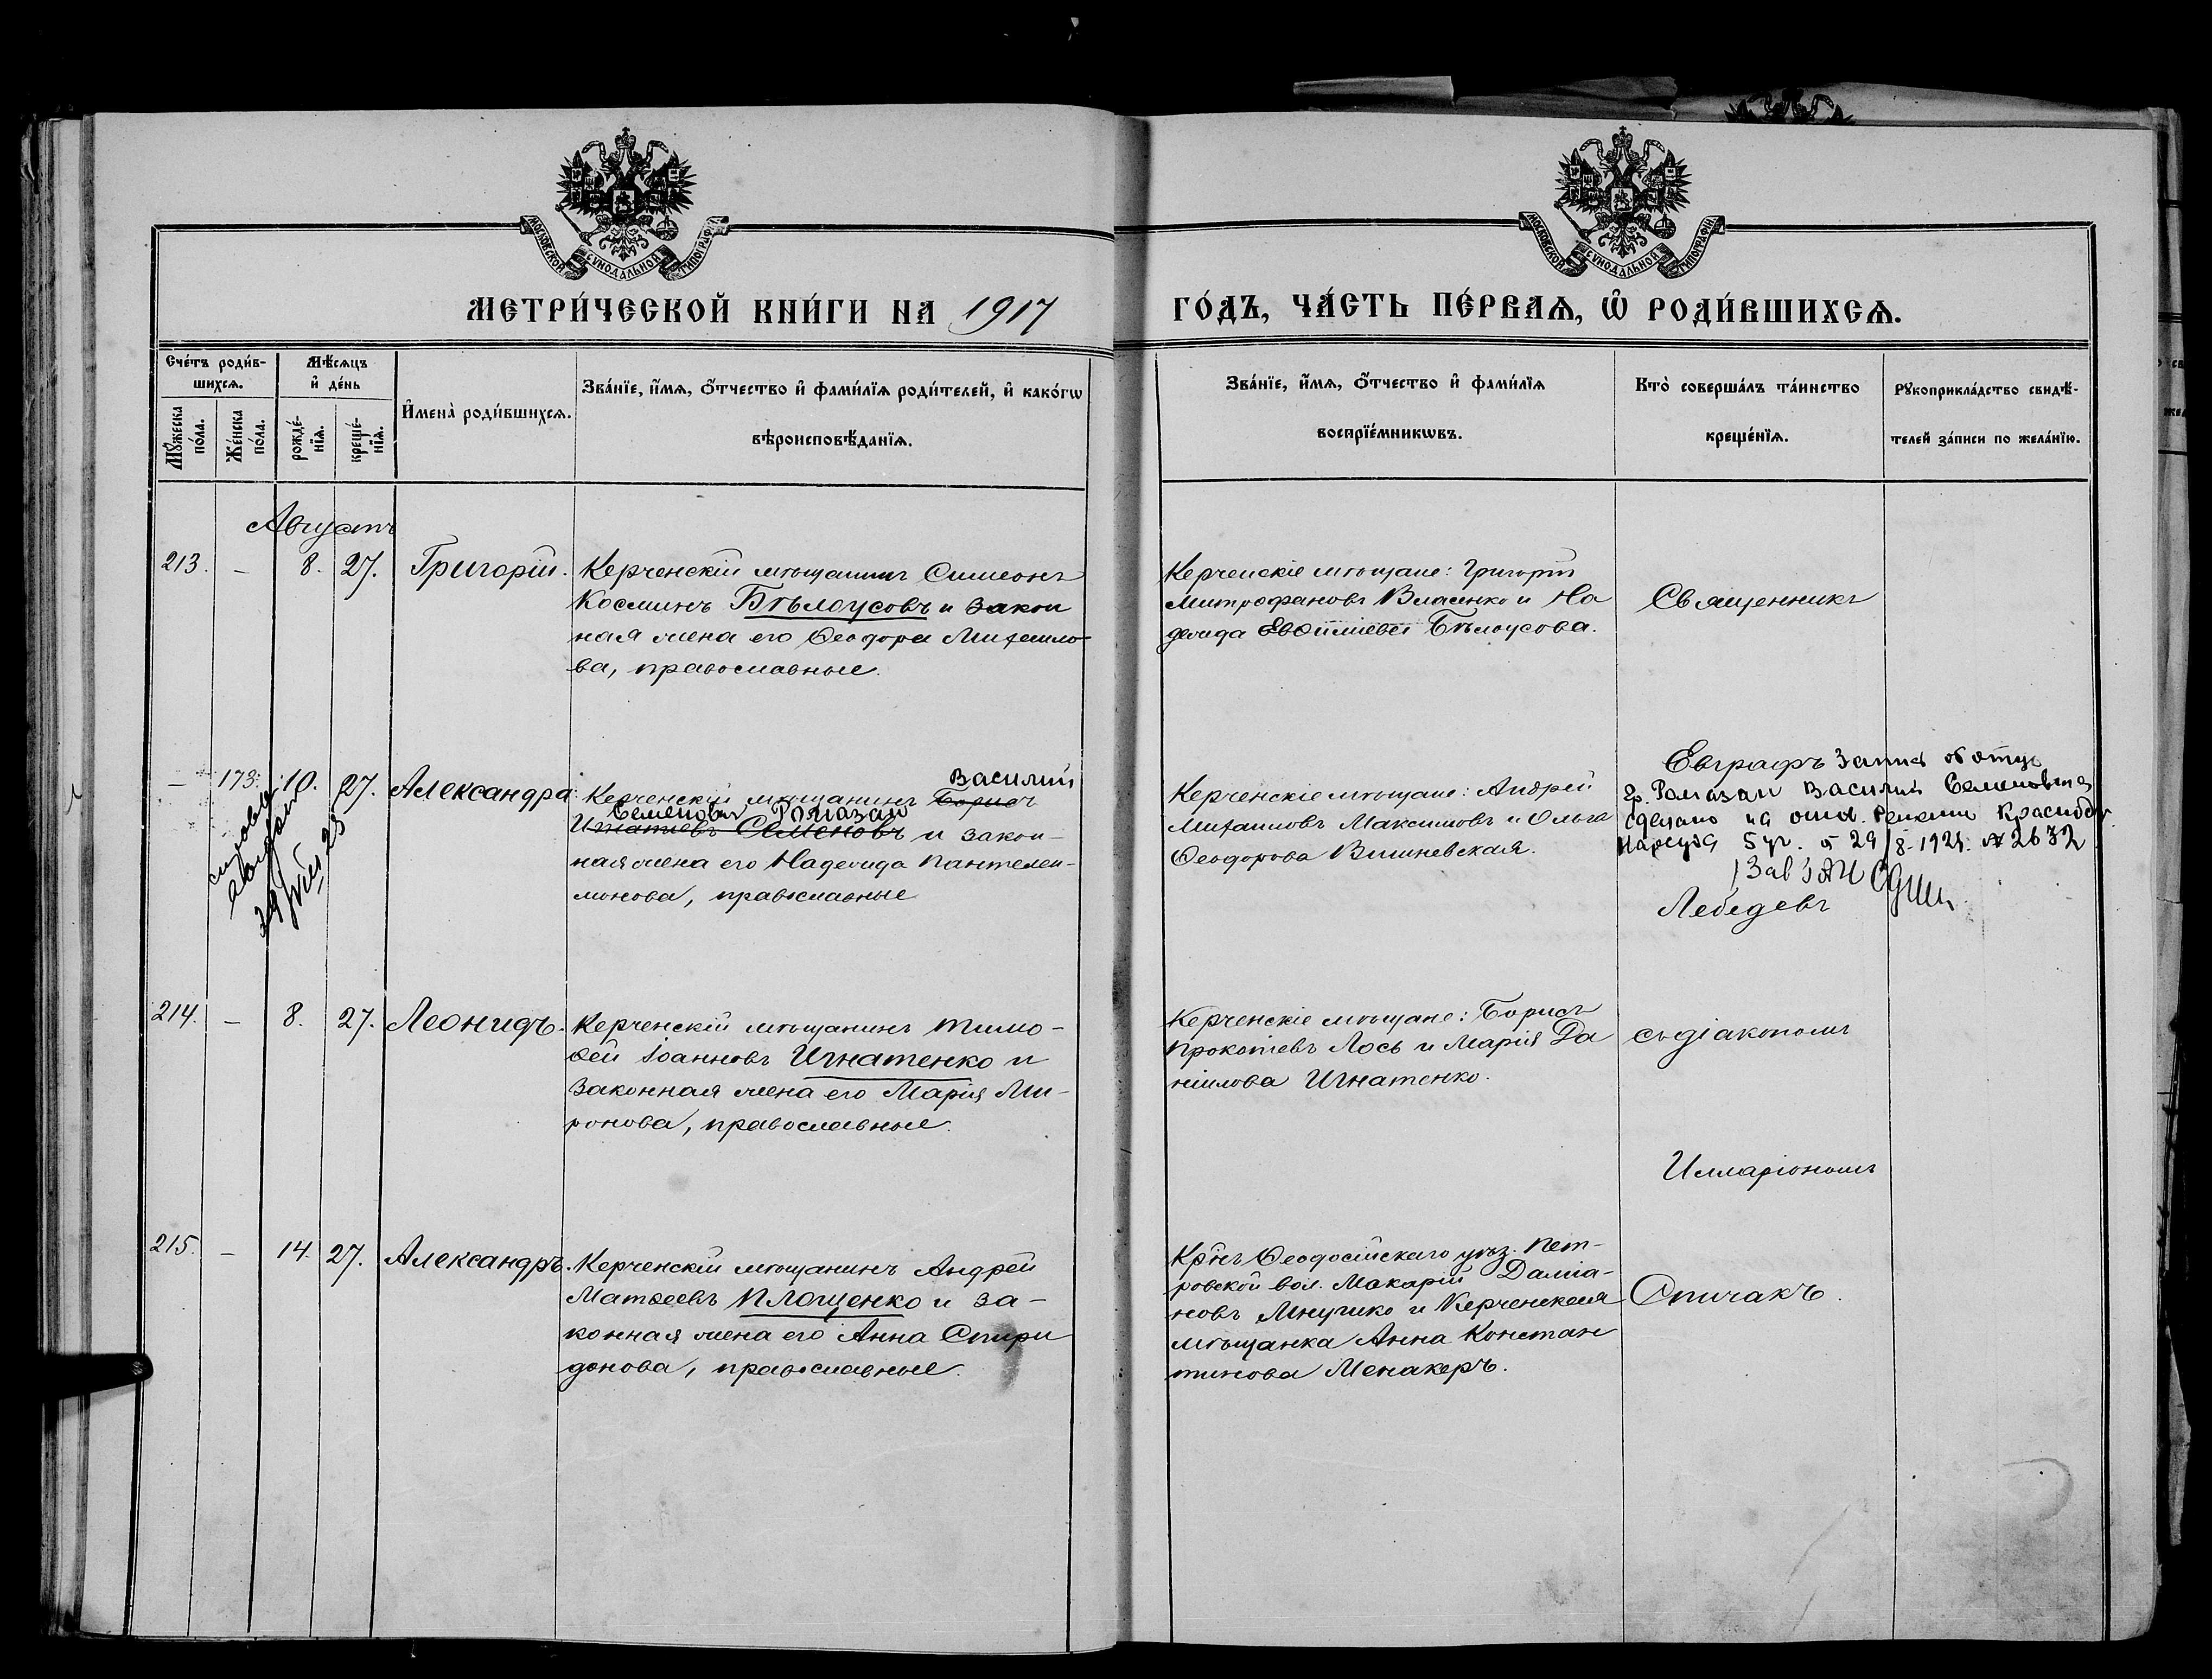 МОСКОВСКОЙ СѴНОДАЛЬНОЙ ТИПОГРАФІИ
МОСКОВСКОЙ СѴНОДАЛЬНОЙ ТИПОГРАФІИ
МЕТРИ́ЧЕСКОЙ КНИ́ГИ НА 1917
ГО́ДЪ, ЧА́СТЬ ПЕ́РВАѦ, Ѡ҆ РОДИ́ВШИХСѦ.
Сче́тъ роди́в-
шихсѧ.
Мѣ́сѧцъ
и҆ де́нь
Мꙋ́жеска
по́ла.
Же́нска
по́ла.
рожде́-
нїѧ.
креще́-
нїѧ.
И҆мена̀ роди́вшихсѧ.
Зва́нїе, и҆́мѧ, ѻ҆́тчество и҆ фами́лїѧ роди́телей, и҆ како́гѡ
вѣроисповѣ́данїѧ.
Зва́нїе, и҆́мѧ, ѻ҆́тчество и҆ фами́лїѧ
воспрїе́мникѡвъ.
Кто̀ соверша́лъ та́инство
креще́нїѧ.
Рꙋкоприкла́дство свидѣ́-
телей за́писи по жела́нїю.
Августъ
213. – 8. 27. Григорій.
Керченскій мѣщанинъ Симеонъ
Косминъ Бѣлоусовъ и закон
ная жена его Ѳеодора Михаило
ва, православные.
Керченскіе мѣщане: Григорій
Митрофановъ Власенко и На
дежда Бѣлоусова.
Священникъ
– 173. 10. 27. Александра
29
Василий
Керченскій мѣщанинъ Борисъ
Семенович Ромазан
Игнатіевъ Семеновъ и закон-
ная жена его Надежда Пантелеи-
монова, православные
Керченскіе мѣщане: Андрей
Михаиловъ Максимовъ и Ольга
Ѳеодорова Вишневская.
Евграфъ
Запись об отце
гр. Ромазан Василий Семеновича
сделано на осн.
Нарсуда 5 уч. 29/8-192 № 2632
Лебедевъ
214. – 8. 27. Леонидъ.
Керченскій мѣщанинъ Тимо-
ѳей Іоанновъ Игнатенко и
законная жена его Марія Ми-
ронова, православные.
Керченскіе мѣщане: Борисъ
Прокопіевъ Лось и Марія Да
ніилова Игнатенко.
съ діакономъ
Илларіономъ
215. – 14. 27. Александръ.
Керченскій мѣщанинъ Андрей
Матѳеевъ Площенко и за-
конная жена его Анна Спири
донова, православные.
Кр̃нъ Ѳеодосійскаго уѣз. Пет-
ровской вол. Макарій Даміа-
новъ и Керченская
мѣщанка Анна Констан
тинова Менакеръ.
Спичакъ.